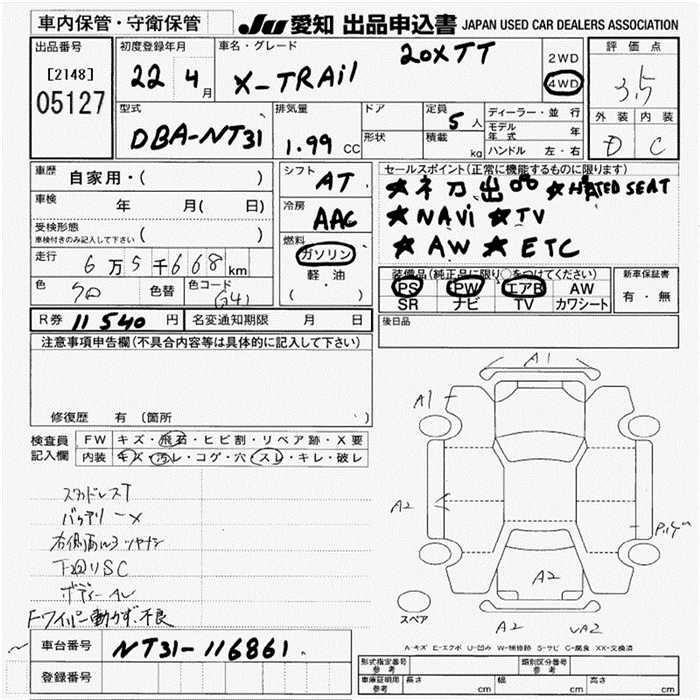 車内保管・守衛保管
JU 愛知 出品申込書 JAPAN USED CAR DEALERS ASSOCIATION
出品番号
[2148]
05127
初度登録年月
22 4月
車名・グレード
X-TRAil 20XTT
2WD
4WD
評価点
3.5
外装 内装
D C
型式
DBA-NT31
排気量
1.99 CC
ドア
形状
定員 5 人
積載 kg
ディーラー・並行
モデル年式 年
ハンドル 左・右
車歴 自家用・( )
車検 年 月( 日)
受検形態
車検付きのみ記入して下さい ( )
走行 6万5千668km
色 クロ 色替 色コード G41
シフト AT
冷房 AAC
燃料
ガソリン
軽油
( ・ )
セールスポイント(正常に機能するものに限ります)
★ネ刀出 ★HEATED SEAT
★NAVi ★TV
★AW ★ETC
装備品(純正品に限り○をつけてください)
PS PW エアB AW
SR ナビ TV カワシート
新車保証書
有・無
R券 11540 円 名変通知期限 月 日
後日品
注意事項申告欄(不具合内容等は具体的に記入して下さい)
修復歴 有(箇所 )
検査員記入欄
FW キズ・飛石・ヒビ割・リペア跡・X要
内装 キズ・汚レ・コゲ・穴・スレ・キレ・破レ
スタッドレスT
バッテリー×
下回りSC
Fワイパー動かず、不良
車台番号 NT31-116861
登録番号
A1
A1
A2
A2
A2
スペア
A-キズ E-エクボ U-凹み W-補修跡 S-サビ C-腐食 XX-交換済
形式指定番号 参考
類別区分番号 参考
車庫証明用 参考 長さ cm 幅 cm 高さ cm